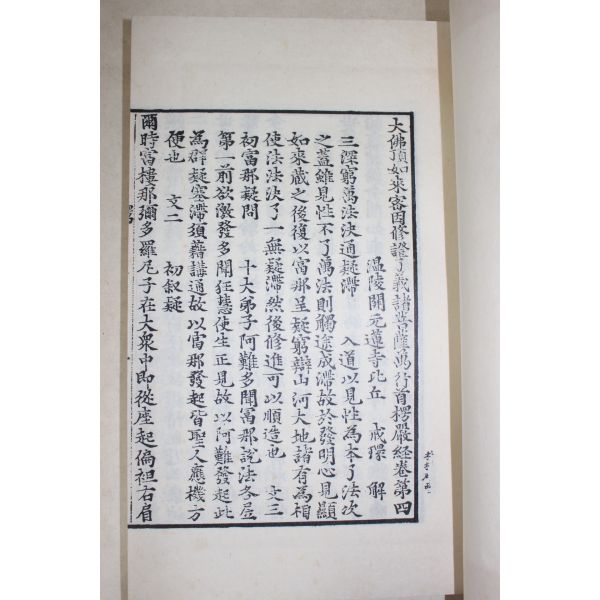 大佛頂如來密因修證了義諸菩薩萬行首楞嚴經卷第四
温陵開元蓮寺比丘 戒環 解
三深窮萬法決通疑滯 入道以見性爲本了法次
之蓋雖見性不了萬法則觸途成滯故於發明心見顯
如來藏之後復以富那呈疑窮辯山河大地諸有爲相
使法法決了一無疑滯然後修進可以順造也 文三
初富那疑問 十大弟子阿難多聞富那說法各居
第一前欲激發多聞狂慧使生正見故以阿難發起此
爲群疑塞滯須藉講通故以富那發起皆聖人應機方
便也 文二 初叙疑
爾時富樓那彌多羅尼子在大衆中即從座起偏袒右肩